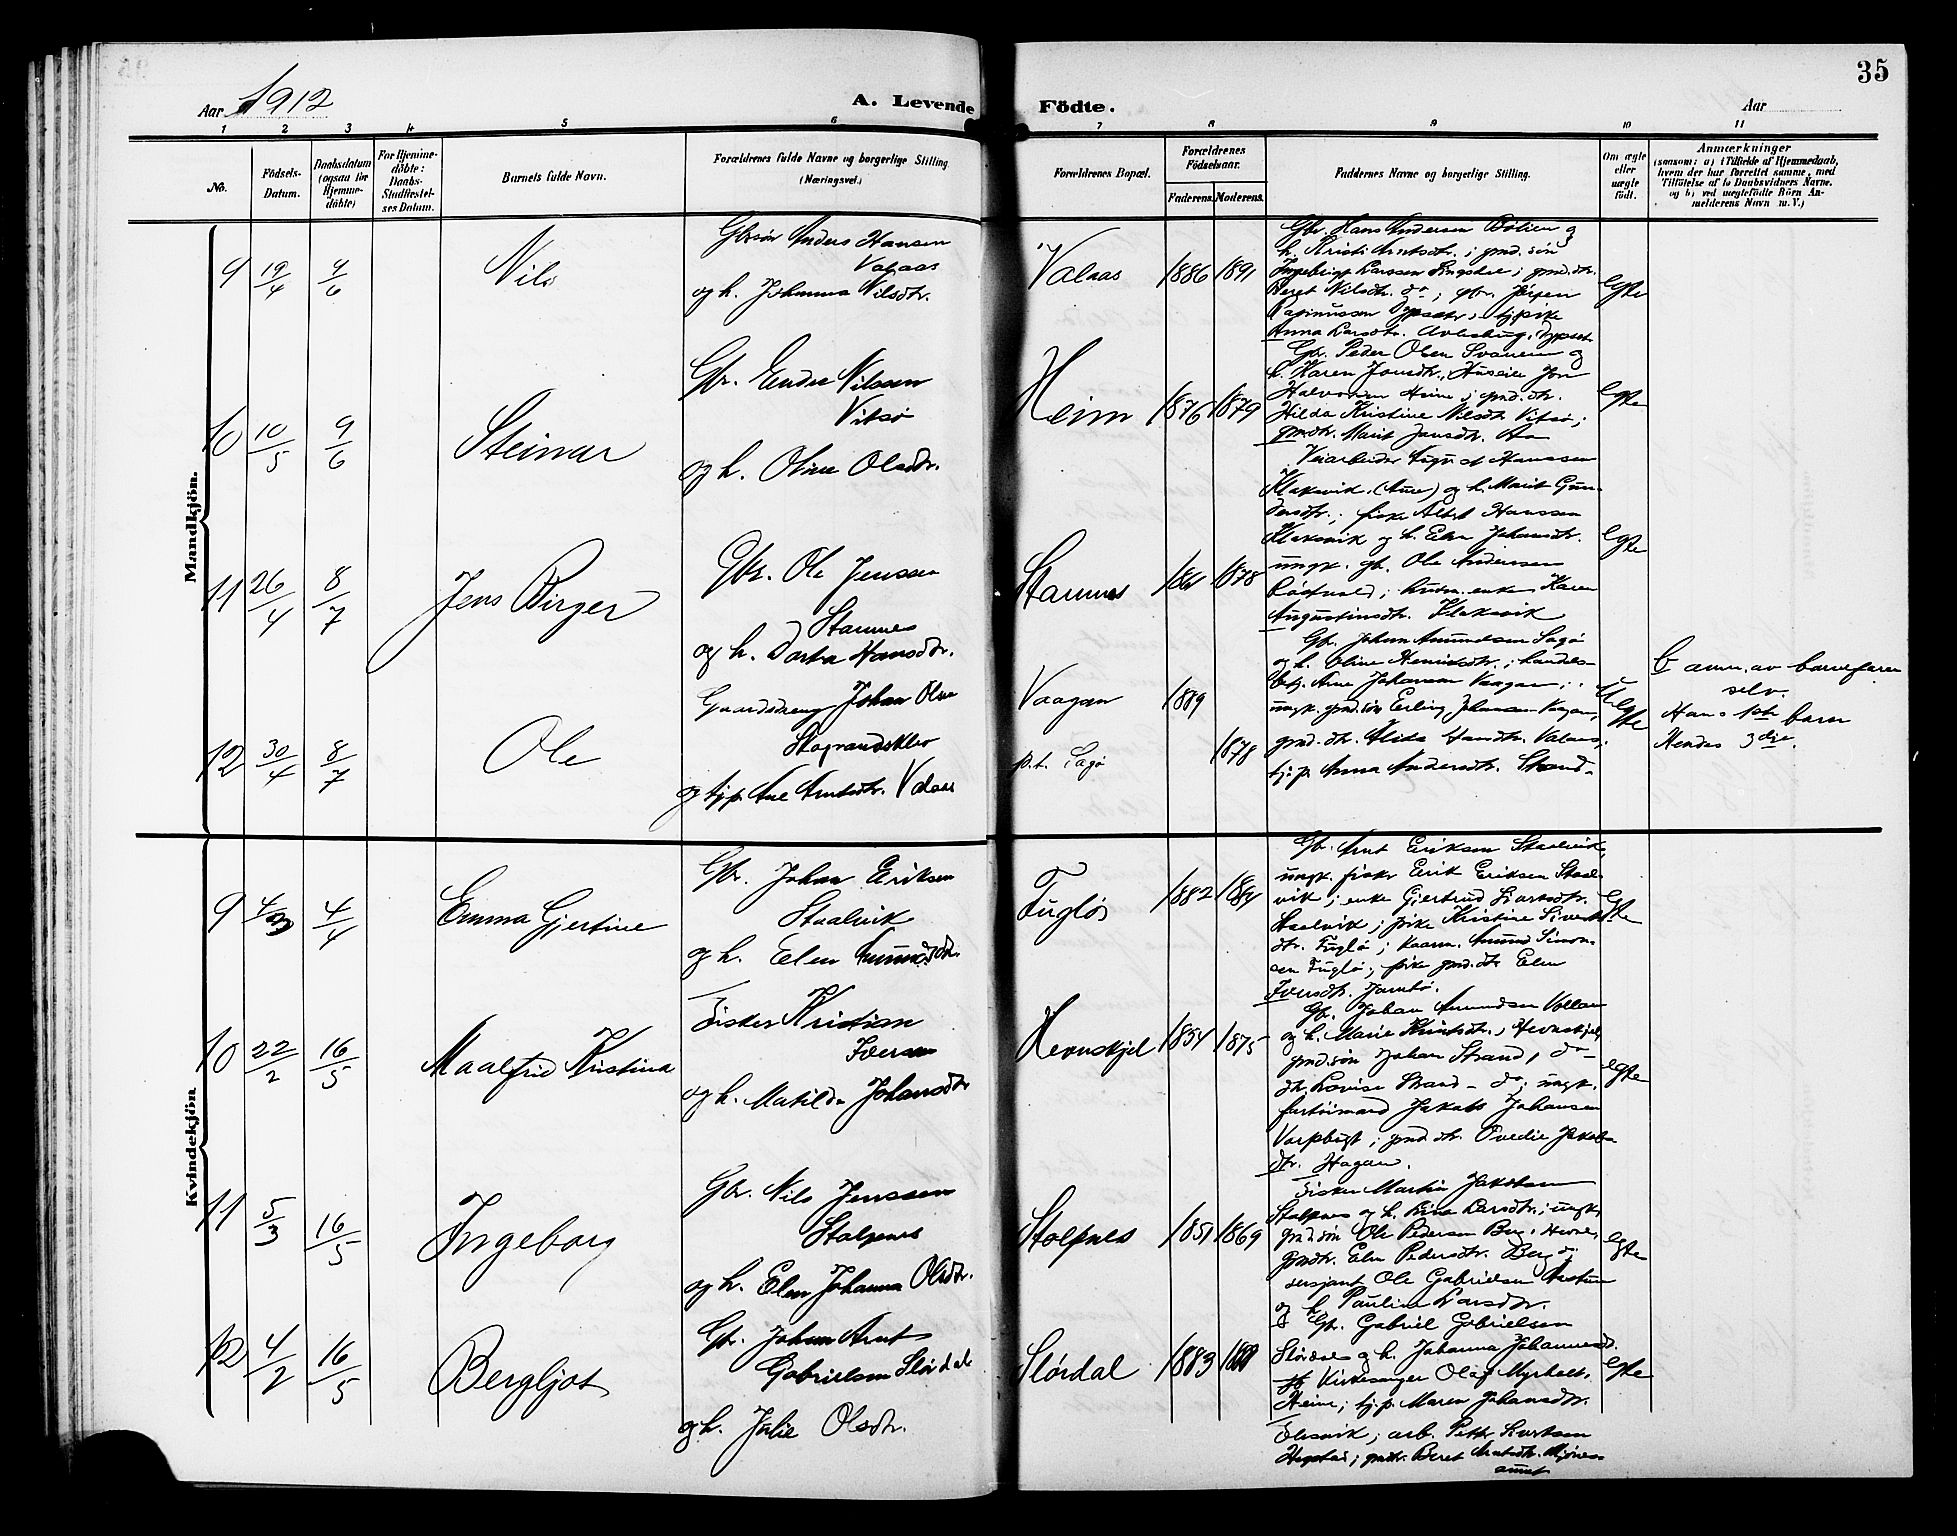 35
Aar 1912
A. Levende Födte.
Aar
1 2 3 4 5 6 7 8 9 10 11
No.
Födsels-Datum.
Daabsdatum (ogsaa for Hjemmedöbte)
For Hjemmedöbte: Daabs-Stadfæstelses Datum.
Barnets fulde Navn.
Forældrenes fulde Navne og borgerlige Stilling (Næringsvei.)
Forældrenes Bopæl.
Forældrenes Födselsaar.
Faderens. Moderens.
Faddernes Navne og borgerlige Stilling.
Om ægte eller uægte födt.
Anmærkninger
(saasom: a) i Tilfælde af Hjemmedaab, hvem der har forrettet samme, med Tilföielse af to Daabsvidners Navne, og b) ved uægtefödte Börn Anmelderens Navn m. V.)
Mandkjön.
9 19/4 4/6 Nils
Gbrsön Anders Hansen
Valaas
og h. Johanna Nilsdtr.
Valaas 1886 1891
Gbr. Hans Andersen Bölien og
h. Kristi Arntsdtr.; gmd.sön
Ingebrigt Larssen
Beret Nilsdtr. do; gbr. Jörgen
Rasmussen
Anna Larsdtr.
Egte
10 10/5 9/6 Steinar
Gbr. Ender Nilssen
Vitsö
og h. Oline Olsdtr.
Heim 1876 1879
Gbr. Peder Olsen Svanem og
h. Karen Jonsdtr., Huseier Jon
Halvorsen Heim; gmd.dtr.
Hilda Kristine Nilsdtr. Vitsö;
gmdtr. Marit Jonsdtr. do
Egte
11 26/4 8/7 Jens Birger
Gbr. Ole Jenssen
Stamnes
og h. Dorta Hansdtr.
Stamnes 1864 1878
Veiarbeider August Hanssen
Klaksvik, (Aure) og h. Marit Gun-
dersdtr.; fisker Albert Hanssen
Klaksvik og h. Elen Johansdtr.
ungk. gb. Ole Andersen
enke Karen
Augustinsdtr. Klaksvik
Egte
12 30/4 8/7 Ole
Gaardsdreng Johan Olsen
og tjp. Ane Arntsdtr. Valaas
Vaagan 1889
p.t. Sagö 1878
Gbr. Johan Amundsen Sagö
og h. Oline Henriksdtr.; handels-
betj. Arne Johansen Vaagan;
ungk. gmd.sön Erling Johansen Vaagan,
gmd.dtr. Alida Hansdtr. Valaas;
tj.p. Anna Andersdtr. Strand-
Uegte
b anm. av barnefaren
selv.
Hans 1ste barn
Hendes 3dje.
Kvindekjön
9 4/3 4/4 Emma Gjertine
Gbr. Johan Eriksen
Staalvik
og h. Elen Amundsdtr.
Fuglö 1882 1884
Gbr. Arnt Eriksen Staalvik,
ungk. fisker Erik Eriksen Staal-
vik; enke Gjertrud Sivertsdtr.
Staalvik; pike Kristine Siverts-
dtr. Fuglö; kaarm. Amund Simon-
sen Fuglö; pike gmd.dtr. Elen
Iversdtr. Jamtö.
Egte
10 22/2 16/5 Maalfrid Kristina
Fisker Kristian
Iversen
og h. Matilda Johansdtr
Hevnskjel 1854 1875
Gbr. Johan Amundsen Vollan
og h. Marie Knutsdtr., Hevnskjel;
gmd.sön Johan Strand, do-
dtr. Lovise Strand - do; ungk.
forstmand Jakob Johansen
Varpbugt; gmd.dtr. Ovedie Jakobs-
dtr. Hagan.
egte
11 5/3 16/5 Ingeborg
Gbr. Nils Jenssen
Stolpnes
og h. Elen Johanna Olsdtr.
Stolpnes 1851 1869
Fisker Martin Jakobsen
Stolpnes og h. Lina Larsdtr.; ungk.
gmd.sön Ole Pedersen Berg, Hevne,
gmdtr. Elen Pedersdtr. Berg do;
sersjant Ole Gabrielsen
og h. Pauline Larsdtr.
egte
12 4/2 16/5 Bergljot
Gbr. Johan Arnt
Gabrielsen Slördal
og h. Julie Olsdtr.
Slördal 1883
Gbr. Gabriel Gabrielsen
Slördal og h. Johanna Johannesd.
Kirkesanger Olaf Myrholt,
Heim; tj.p. Maren Johansdtr.
Elisvik; arb. Petter Sivertsen
Hegstad; gmdtr. Beret Arntsdtr.
Egte